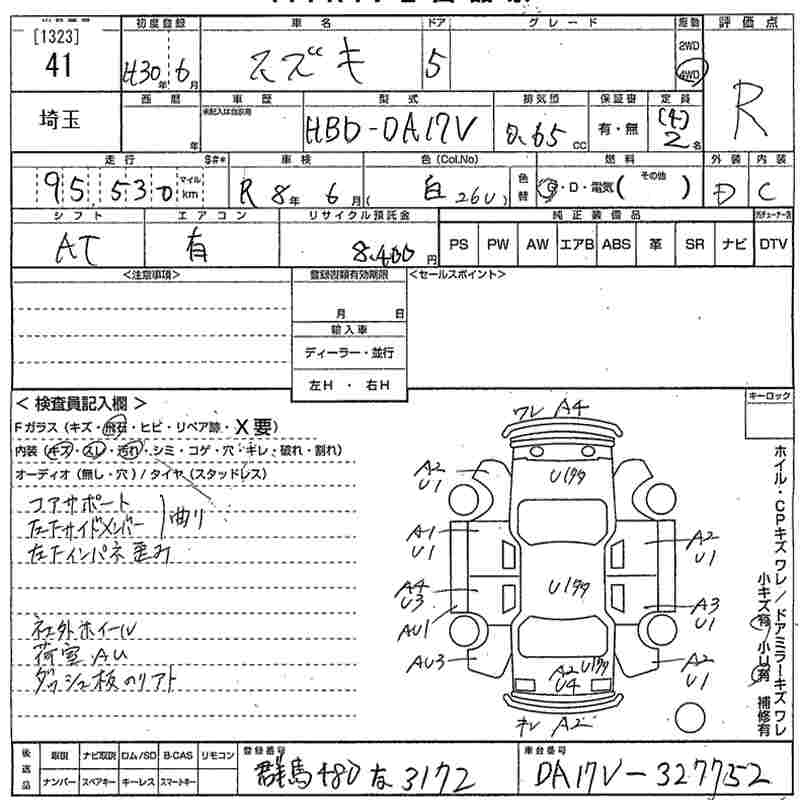 [1323]
41
初度登録 車名 ドア グレード 駆動 評価点
H30年6月 スズキ 5 2WD 4WD R
埼玉
西暦 車歴 型式 排気量 保証書 定員
年 未記入は自家用 HBD-DA17V 0.65cc 有・無 (4) 2名
走行 $#* 車検 色(Col.No) 燃料 外装 内装
95,530 マイル km R8年6月 ( 白 26U ) 色替 G・D・電気( その他 ) D C
シフト エアコン リサイクル預託金 純正装備品
AT 有 8,400円 PS PW AW エアB ABS 革 SR ナビ DTV
<注意事項> 登録書類有効期限 <セールスポイント>
月 日
輸入車
ディーラー・並行
左H ・ 右H
キーロック
<検査員記入欄>
Fガラス(キズ・飛石・ヒビ・リペア跡・X要)
内装(キズ・スレ・汚れ・シミ・コゲ・穴・キレ・破れ・割れ)
オーディオ(無し・穴)/タイヤ(スタッドレス)
コアサポート
左下サイドメンバー 曲り
左下インパネ歪み
社外ホイール
荷室AU
ダッシュ板のリアト
ワレ A4
A2 U1
U1
A1 U1
A2 U1
A4 U3
A3 U1
AU1
AU3
A2 U4
A2 U1
キレ A2
ホイル・CPキズワレ/ドアミラーキズワレ
小キズ有 小U有 補修有
後返品 取説 ナビ取説 ロム/SD B-CAS リモコン 登録番号 車台番号
ナンバー スペアキー キーレス スマートキー 群馬480 3172 DA17V-327752